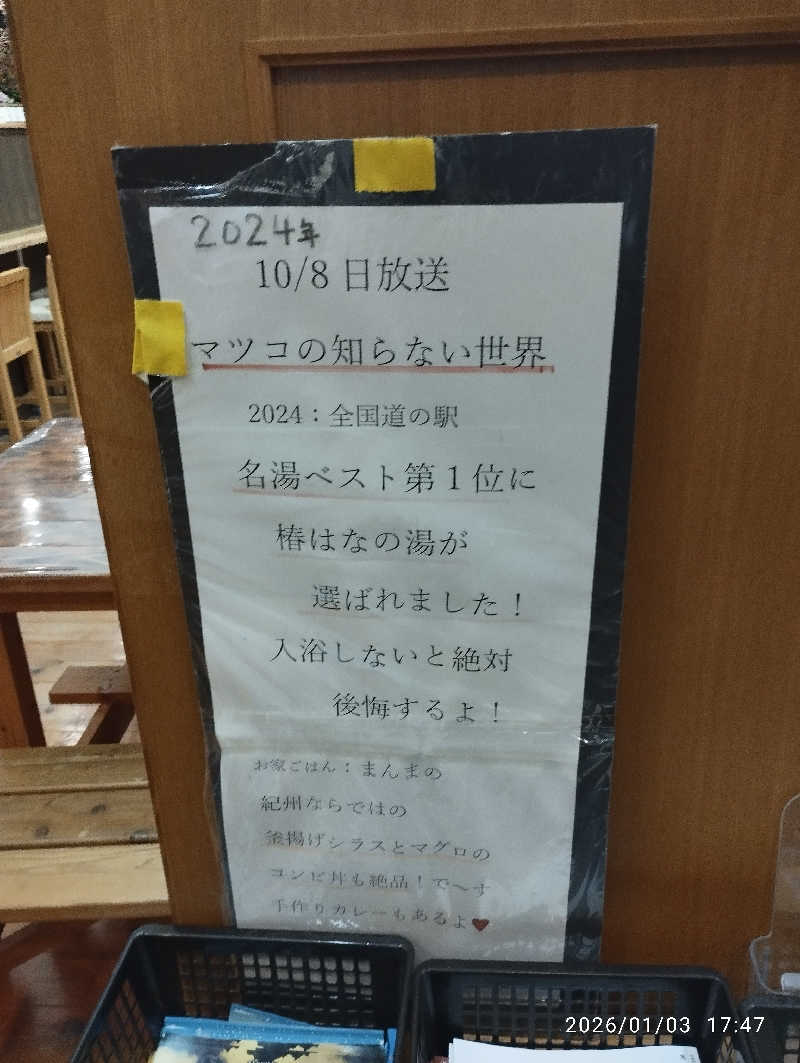 2024年
10/8 日放送
マツコの知らない世界
2024：全国道の駅
名湯ベスト第１位に
椿はなの湯が
選ばれました！
入浴しないと絶対
後悔するよ！
お家ごはん：まんまの
紀州ならではの
釜揚げシラスとマグロの
コンビ丼も絶品！で～す
手作りカレーもあるよ♥
2026/01/03 17:47